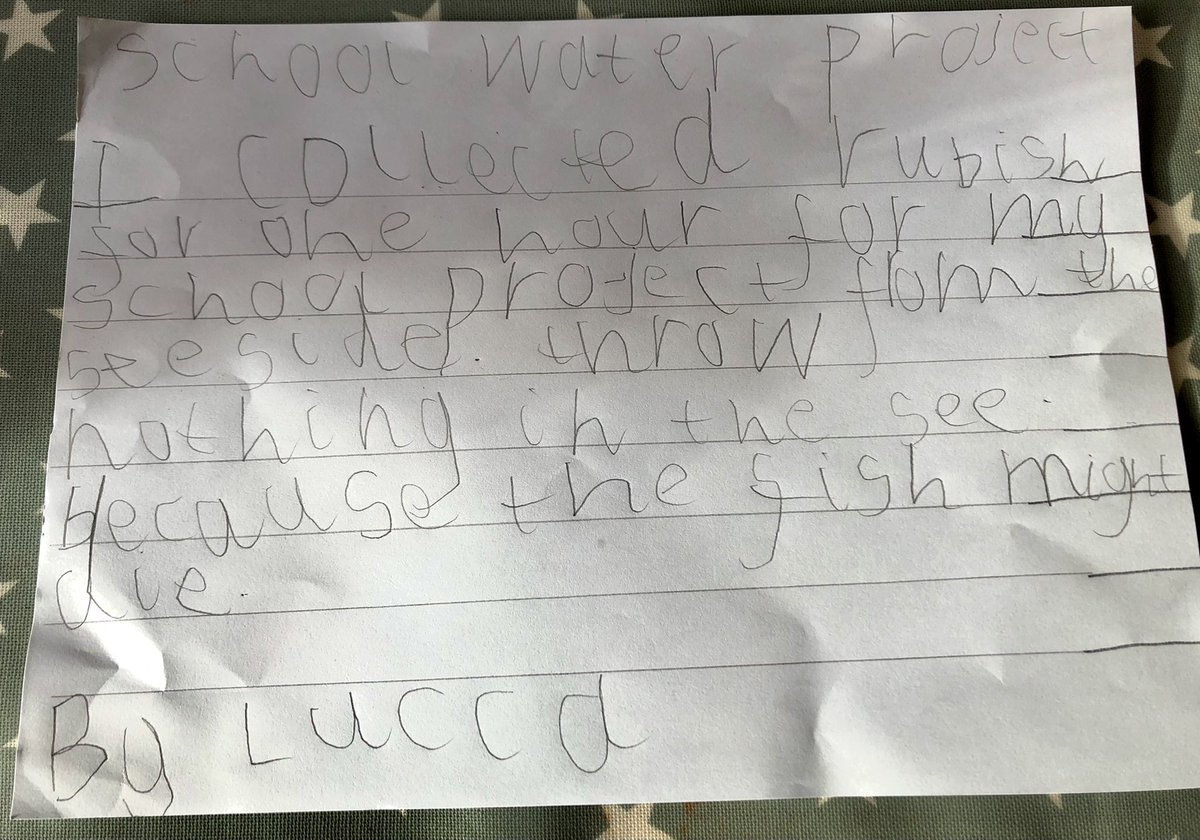 school water project
I collected rubish
for one hour for my
school project from the
seeside. throw
nothing in the see.
because the fish might
die.
By Lucca